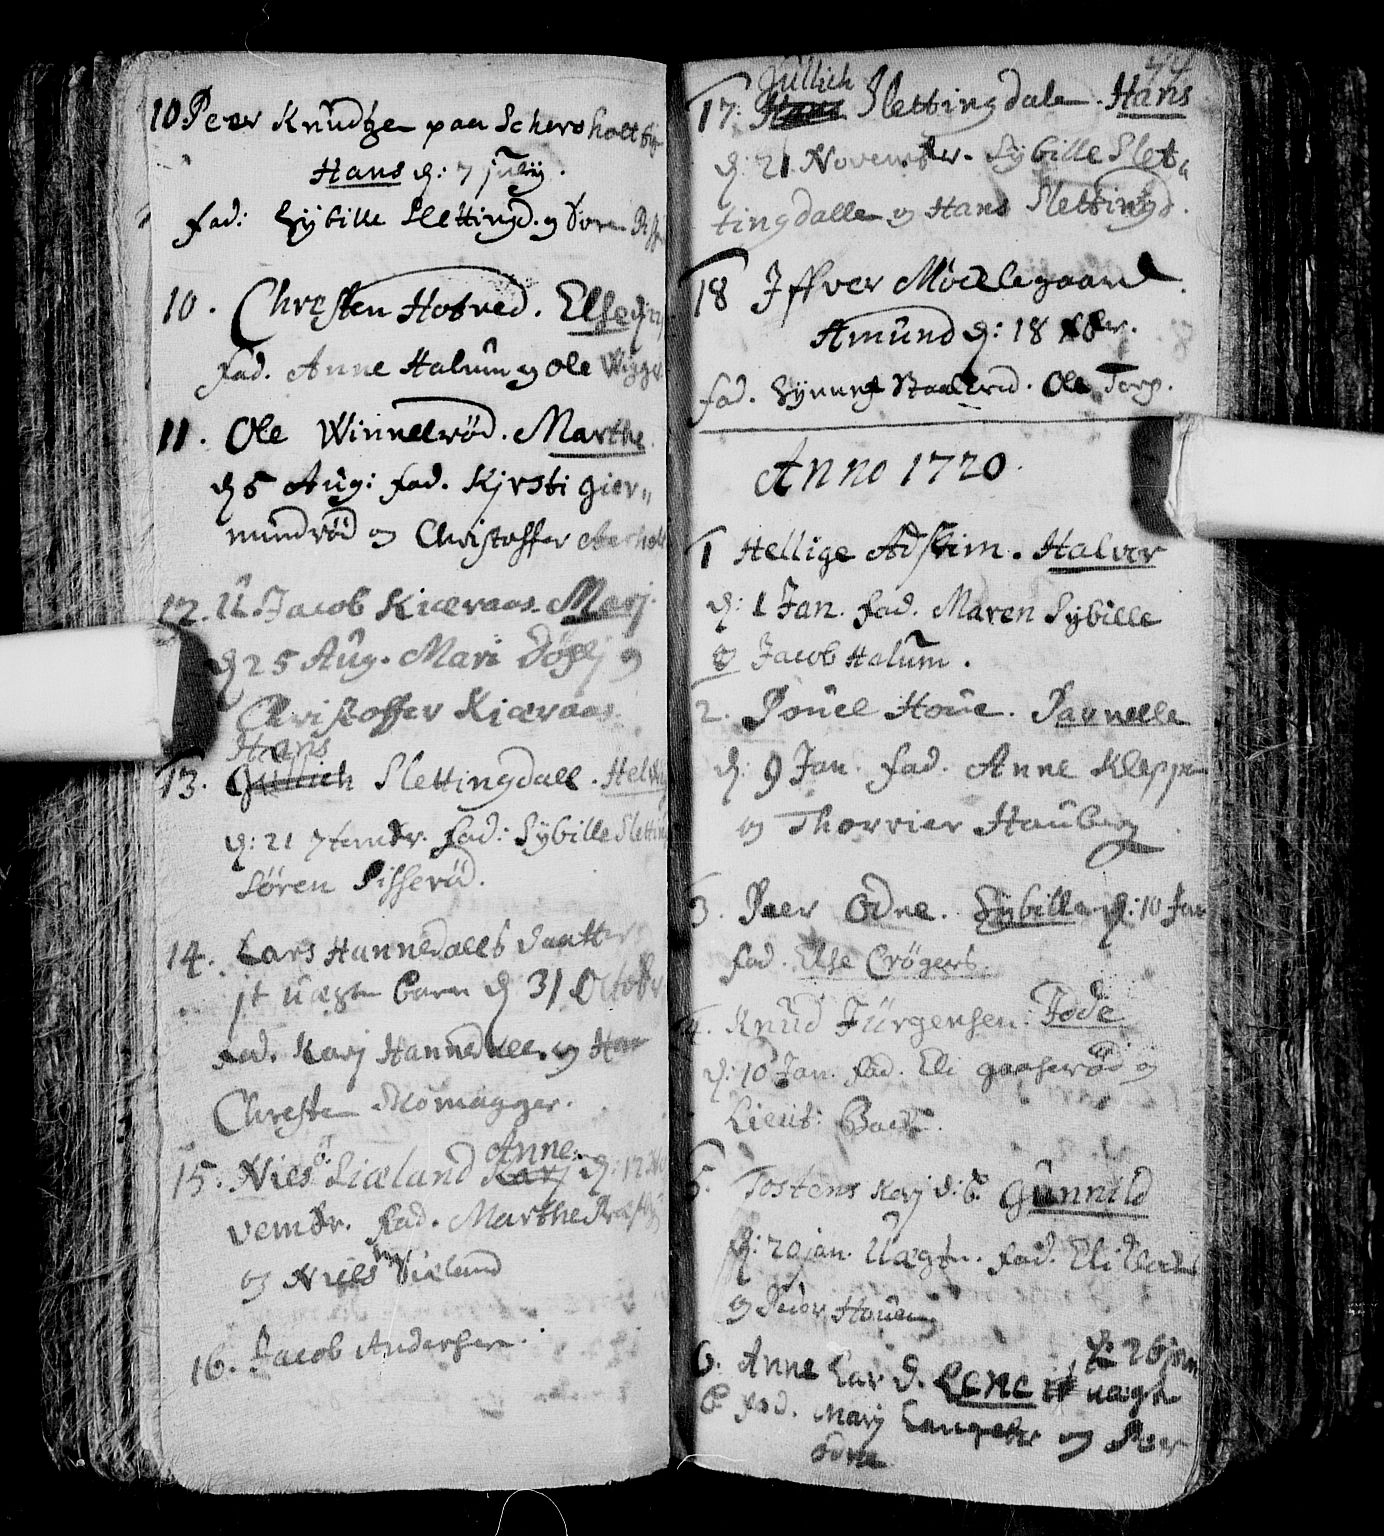 10 Peer Knudtzen paa Scheresholt
Hans d: 7 july.
fad: Sybille Slettingd. og Sören
10. Chresten Hotved. Else d:
fad. Anne Halum og Ole Wigger
11. Ole Winnelröd. Marthe
d 5 Aug: fad. Kjrsti gier„
mundröd og Christoffer
12. U Jacob Kiæraas. Marj.
d 25 Aug. Mari og
Christoffer Kiæraas.
Hans
13. Gullich Slettingdall. Helvig
d: 21 7tembr. fad: Sybille Sletting
Sören Sisseröd.
14. Lars Hannedalls daatter
it uægte barn d 31 Octobr
fad. Karj Hannedall. og Han
Chresten Skomagger.
Anne
15. Niels Liæland Karj d: 17 No
vembr. fad. Marthe
og Niels Viæland
16. Jacob Andersen.
44
Gullich
17. Hans Slettingdale. Hans
d: 21 November. Sybille Slet„
tingdalle og Hans Slettingd.
18 Iffver Möellegaard.
Amund d: 18 Xbr.
fad. Ole Torp.
Anno 1720.
1 Hellige Adskim. Halvor
d: 1 Jan. fad. Maren Sybille
og Jacob Halum.
2. Pouel Houe. Pernelle
d: 9 Jan. fad. Anne Kleppen
og Thorrier Hauberg
3. Peer Odne. Sybille d: 10 Jan
fad. Else Crögers.
4. Knud Jürgensen. Tode
d: 10 Jan. fad. Eli gaaseröd og
Lieut:
5. Tostens Karj d: b. Gunnild
d: 20 jan. Uægte. fad. Eli
og Peder Houen
6. Anne Lar d. Lene it uægte d: 26 jan
B fad. Marj Langebr og Peer
Odne